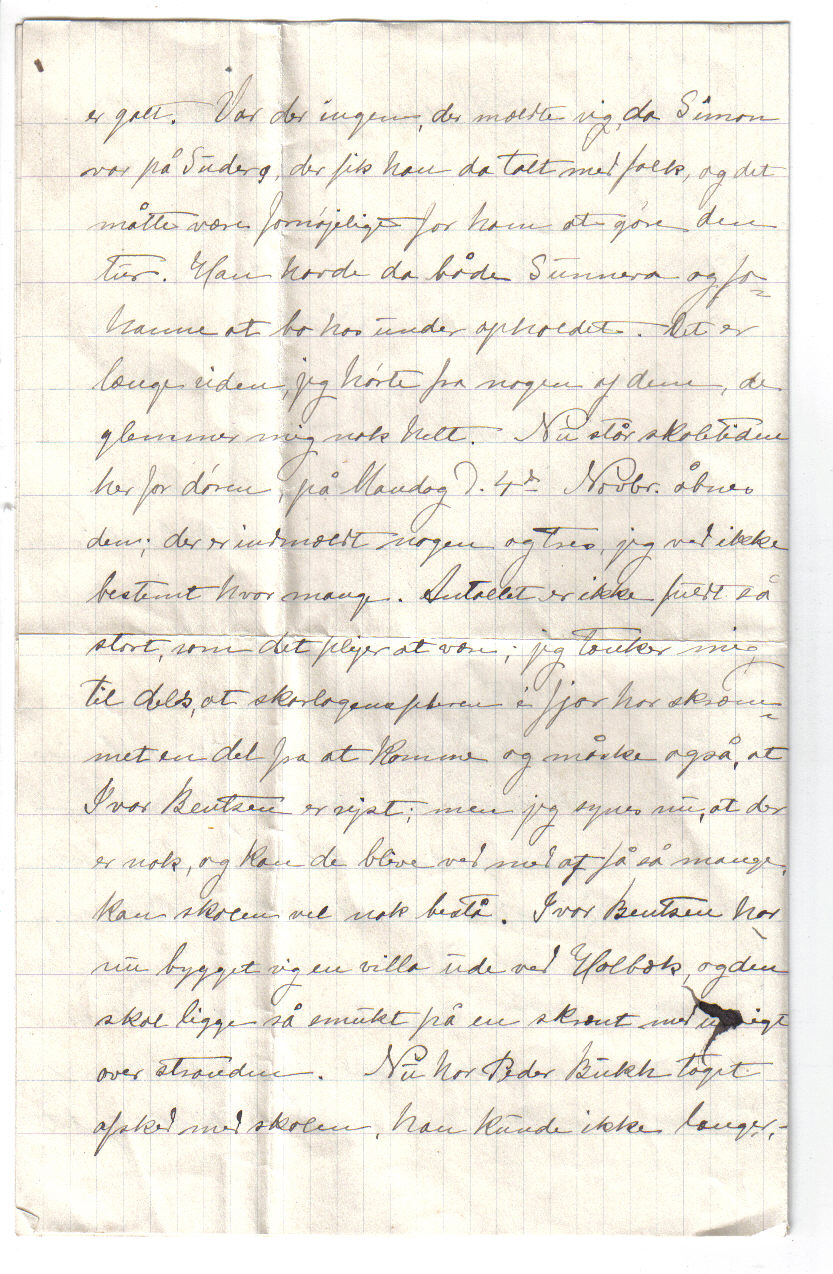 er galt. Var der ingen, der mældte sig, da Simon
var på Suderø, der fik han da talt med folk, og det
måtte være fornøjeligt for ham at göre den
tur. Han havde da både Sunneva og Jo=
hanne at bo hos under opholdet. Det er
længe siden, jeg hörte fra nogen af dem, de
glemmer mig nok helt. Nu står skoletiden
her for dören, på Mandag d. 4de Novbr. åbnes
den; der er indmældt nogen og tres, jeg ved ikke
bestemt hvor mange. Antallet er ikke fuldt så
stort, som det plejer at være; jeg tænker mig
til dels, at skarlagensfeberen i fjor har skræm=
met en del fra at komme og måske også, at
Ivar Bentsen er rejst; men jeg synes nu, at der
er nok, og kan de blive ved med at få så mange,
kan skolen vel nok bestå. Ivar Bentsen har
nu bygget sig en villa ude ved Holbæk, og den
skal ligge så smukt på en skrænt med udsigt
over stranden. Nu har Peder Bukh taget
afsked med skolen, han kunde ikke længer,-